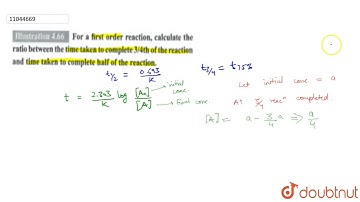 11044669
Illustration 4.66 For a first order reaction, calculate the
ratio between the time taken to complete 3/4th of the reaction
and time taken to complete half of the reaction.
t1/2 = 0.693/K
t3/4 = t75%
t = 2.303/K log [A0]/[A]
initial conc.
final conc
Let initial conc = a
At 3/4 reacn completed.
[A] = a - 3/4 a ⇒ a/4
doubtnut